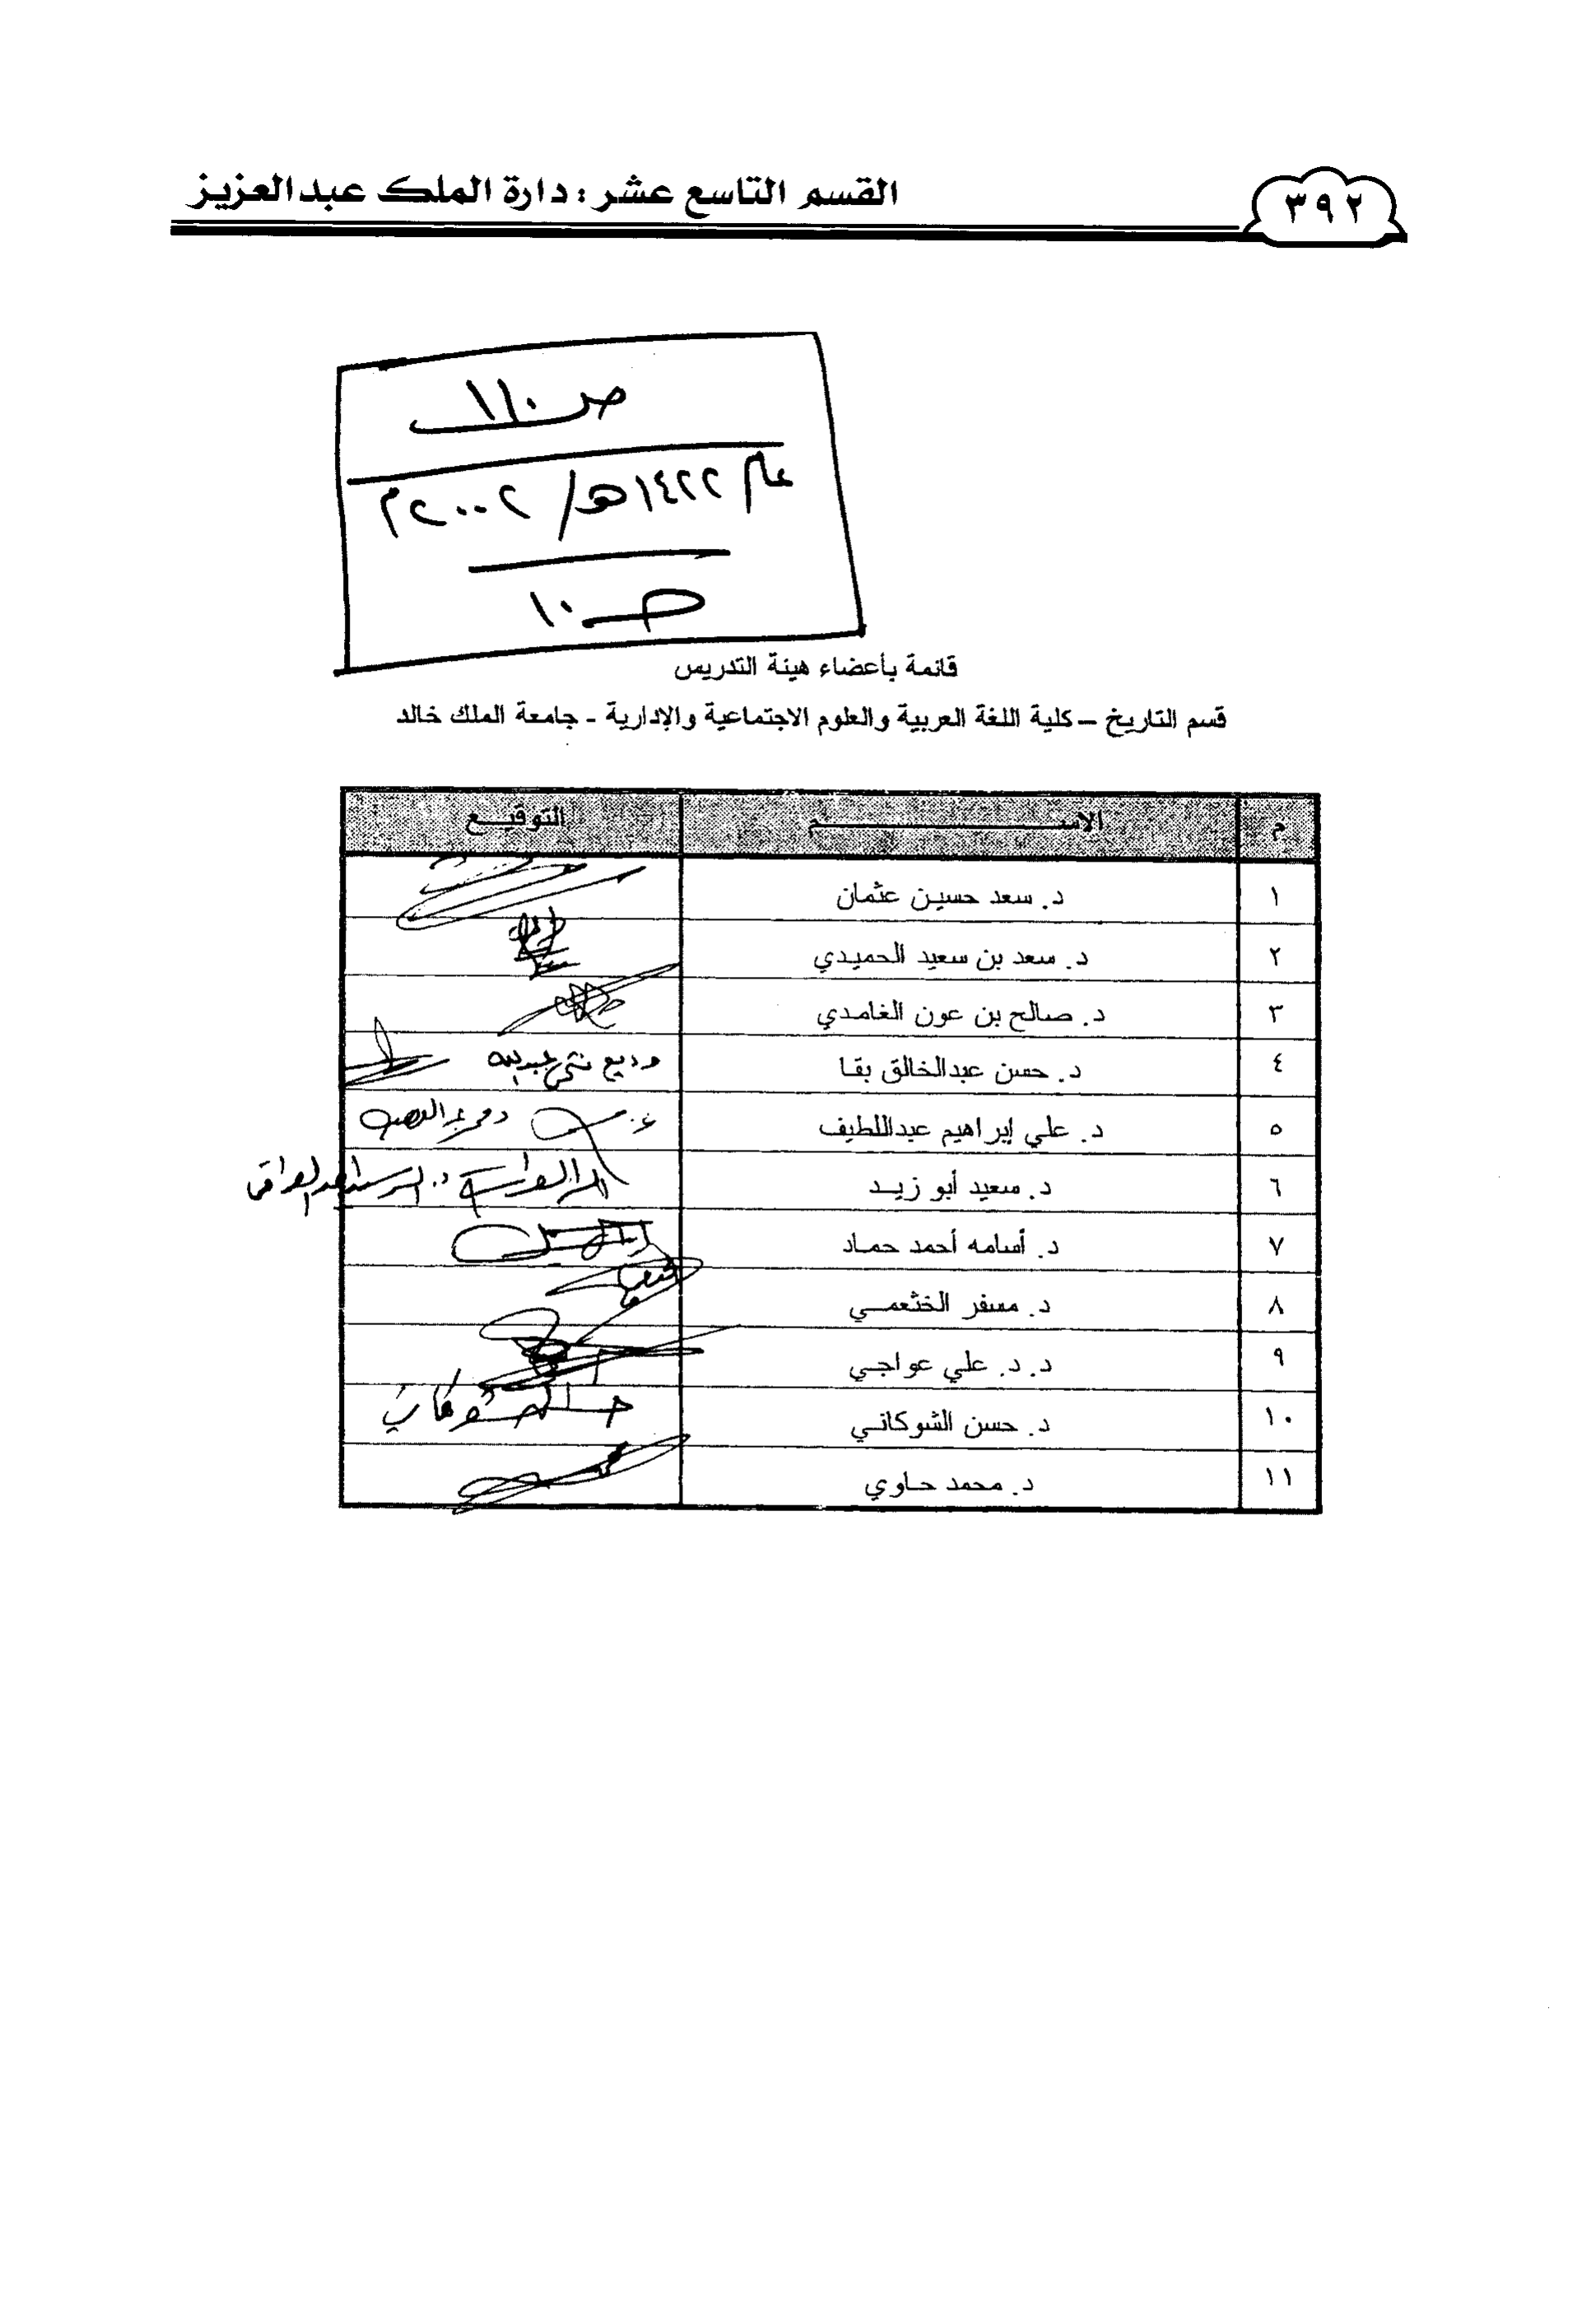 القسم التاسع عشر : دارة الملك عبدالعزيز
٣٩٢
عام ١٤٢٢هـ/ ٢٠٠٢م
ص ١٠
قائمة بأعضاء هيئة التدريس
قسم التاريخ – كلية اللغة العربية والعلوم الاجتماعية والإدارية - جامعة الملك خالد
م الاســـــم التوقيـــع
١ د. سعد حسين عثمان
٢ د. سعد بن سعيد الحميدي
٣ د. صالح بن عون الغامدي
٤ د. حسن عبدالخالق بقا وديع عبدالله
٥ د. علي إبراهيم عبداللطيف
٦ د. سعيد أبو زيـد
٧ د. أسامه أحمد حماد
٨ د. مسفر الخثعمـي
٩ د. د. علي عواجي
١٠ د. حسن الشوكاني
١١ د. محمد حاوي